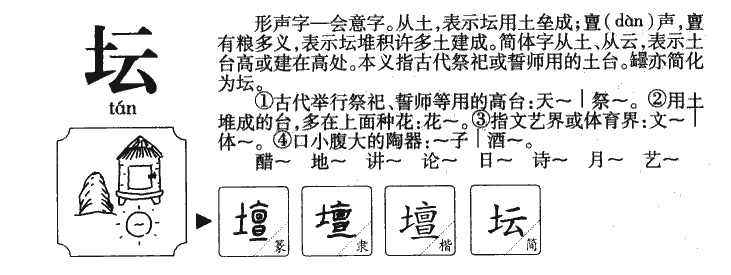 坛
tán
形声字—会意字。从土，表示坛用土垒成；亶(dàn)声，亶
有粮多义，表示坛堆积许多土建成。简体字从土、从云，表示土
台高或建在高处。本义指古代祭祀或誓师用的土台。罎亦简化
为坛。
①古代举行祭祀、誓师等用的高台：天～｜祭～。②用土
堆成的台，多在上面种花：花～。③指文艺界或体育界：文～｜
体～。④口小腹大的陶器：～子｜酒～。
醋～ 地～ 讲～ 论～ 日～ 诗～ 月～ 艺～
壇 篆
壇 隶
壇 楷
坛 简